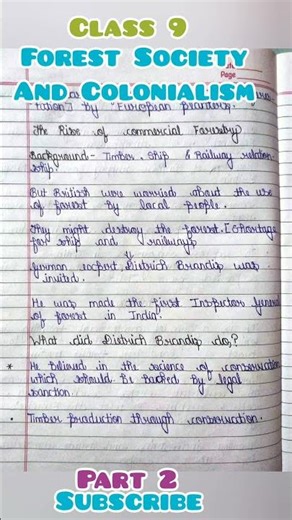 Class 9
Forest Society
Page
And Colonialism
by "European planters.
The Rise of commercial Forestry
Background - Timber, Ship & Railway relation-
ship.
But British were worried about the use
of forest by local people.
They might destroy the forest. [Shortage
for ship and railways
German expert, District Brandis was
invited.
He was made the first Inspector General
of forest in India.
What did District Brandis do?
* He believed in the science of conservation
which should be backed by legal
sanction.
• Timber production through conservation.
Part 2
Subscribe